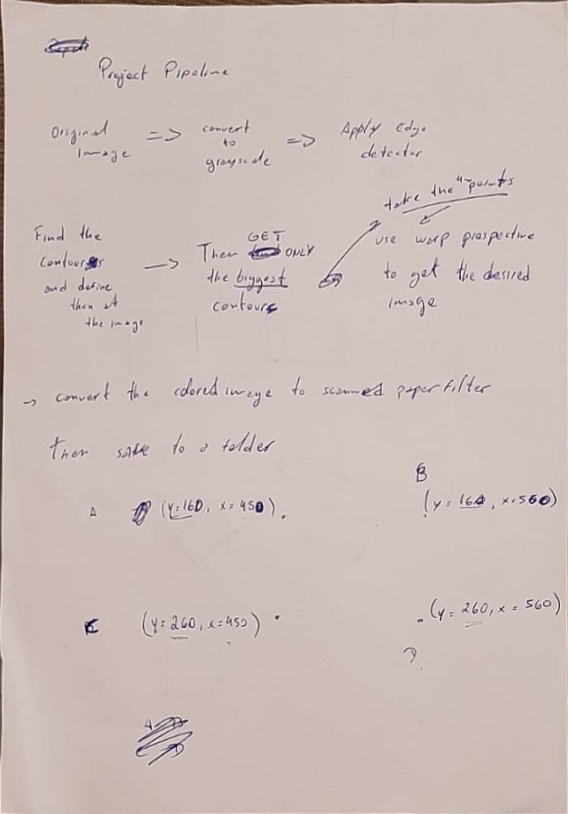 Project Pipeline
Original image => convert to grayscale => Apply Edge detector
Find the
contours
and define
them at
the image
→
GET
Then ONLY
the biggest
contours
take the 4 points
use warp prespective
to get the desired
image
→ convert the colored image to scanned paper filter
Then save to a folder
A (y=160, x=450).
B
(y=160, x=560)
C (y=260, x=450) .
. (y=260, x=560)